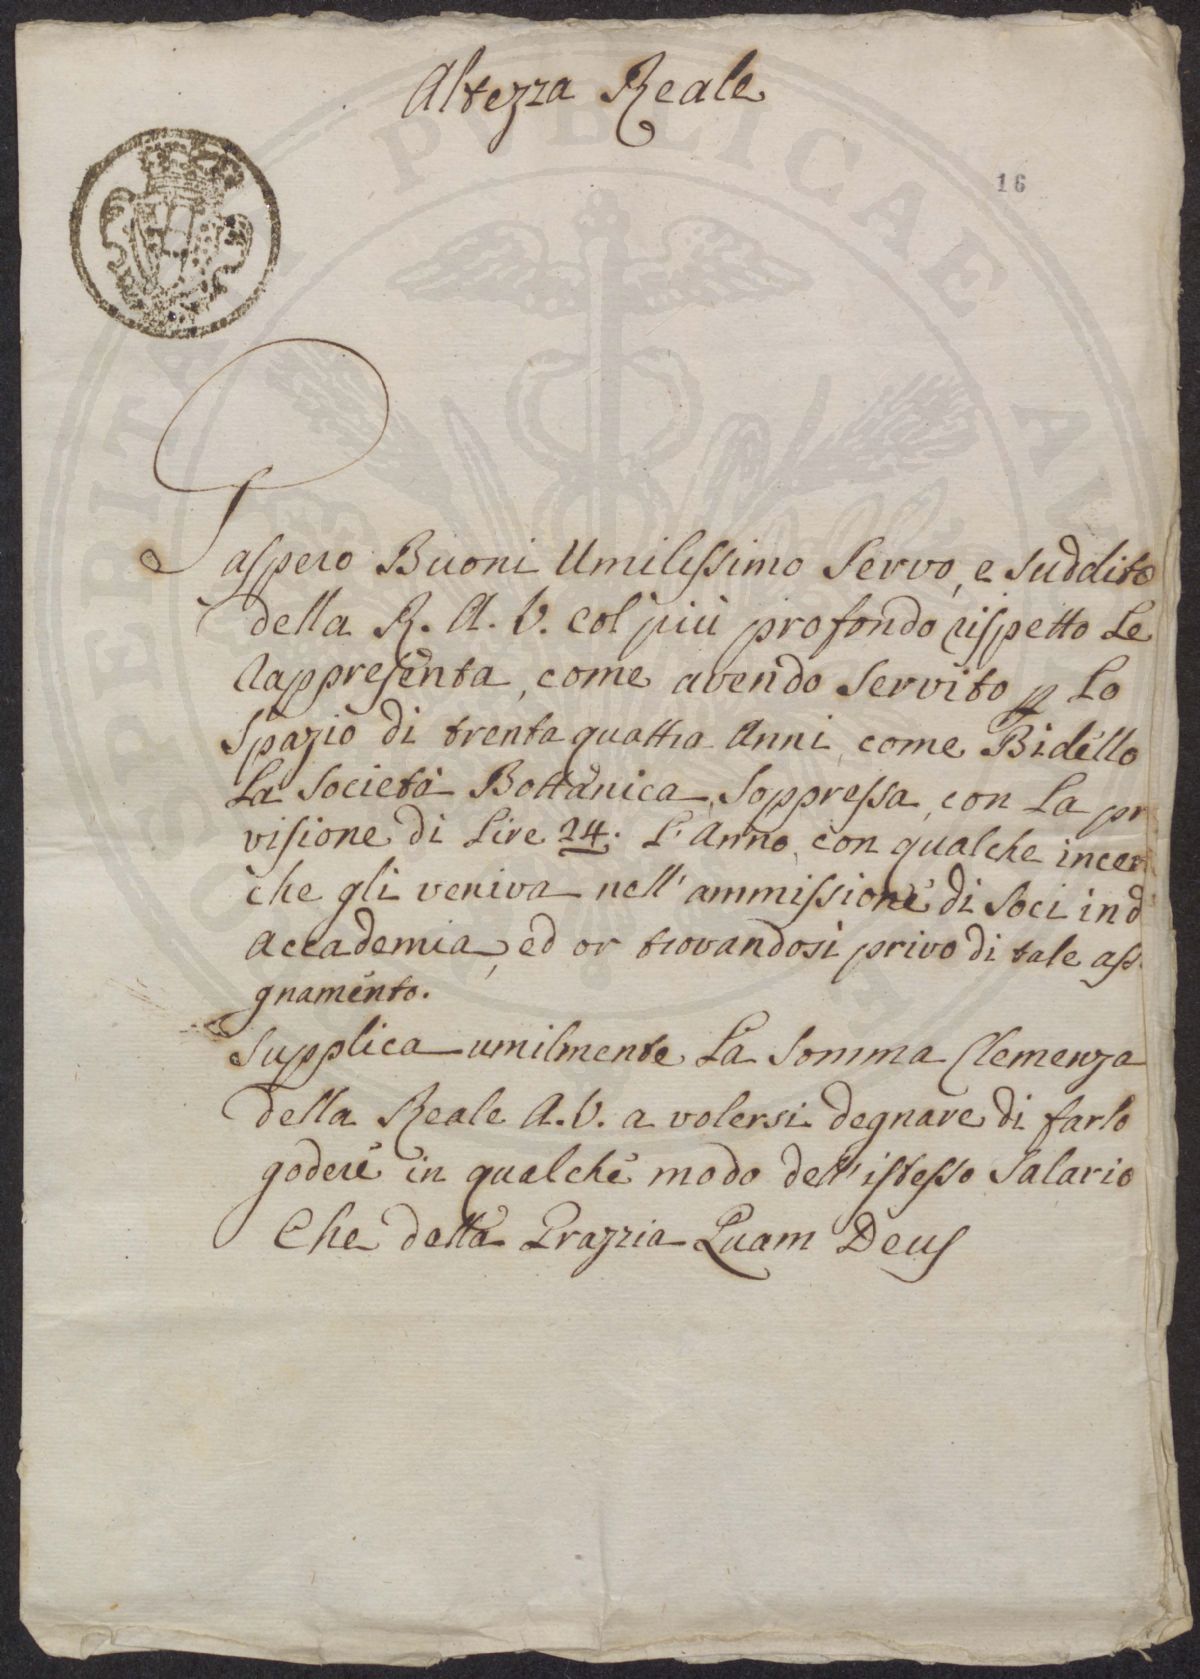 Altezza Reale
16
Gaspero Buoni Umilissimo Servo, e Suddito
della R. A. V. col' più profondo rispetto Le
rappresenta, come avendo Servito p Lo
Spazio di trenta quattra Anni, come Bidello
La Società Bottanica Soppressa, con La pr
visione di Lire 24. L' Anno, con qualche incer
che gli veniva nell' ammissione di Soci in d
Accademia, ed or trovandosi privo di tale ass
gnamento.
Supplica umilmente La Somma Clemenza
della Reale A. V. a volersi degnare di farlo
godere in qualche modo dell' istesso Salario
Che della Grazzia Quam Deus
PUBLICAE